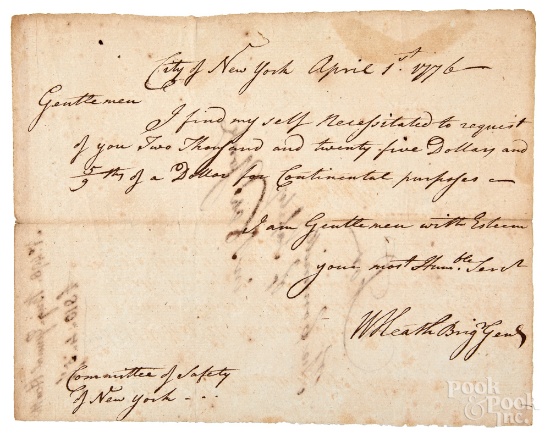 City of New York April 1st. 1776
Gentlemen
I find my self Necessitated to request
of you Two Thousand and twenty five Dollars, and
5/9ths of a Dollar for Continental purposes
I am Gentlemen with Esteem
your most Humble Servt
W Heath Brigr Genl
Committee of Safety
of New York - - -
Pook & Pook Inc.